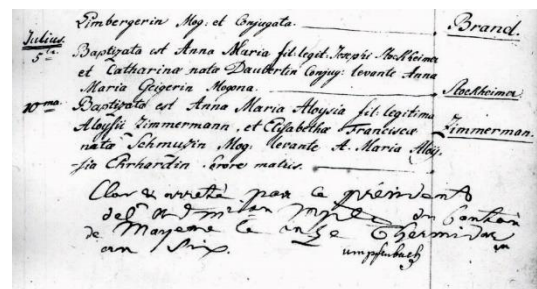 Limbergerin Mog: et Conjugata. Brand.
Julius.
5ta Baptizata est Anna Maria fil. legit. Josephi Stockheimer
et Catharinæ natæ Daubertin Conjug: levante Anna
Maria Geigerin Mogona. Stockheimer.
10ma Baptizata est Anna Maria Aloysia fil. legitima
Aloysii Zimmermann, et Elisabethæ Franciscæ Zimmerman.
natæ Schmusin Mog. levante A. Maria Aloy-
sia Ehrhardin sorore matris.
Clos & arreté par le président
de l'adm. du Canton
de Mayence le onze Thermidor
an Six.
umpfenbach